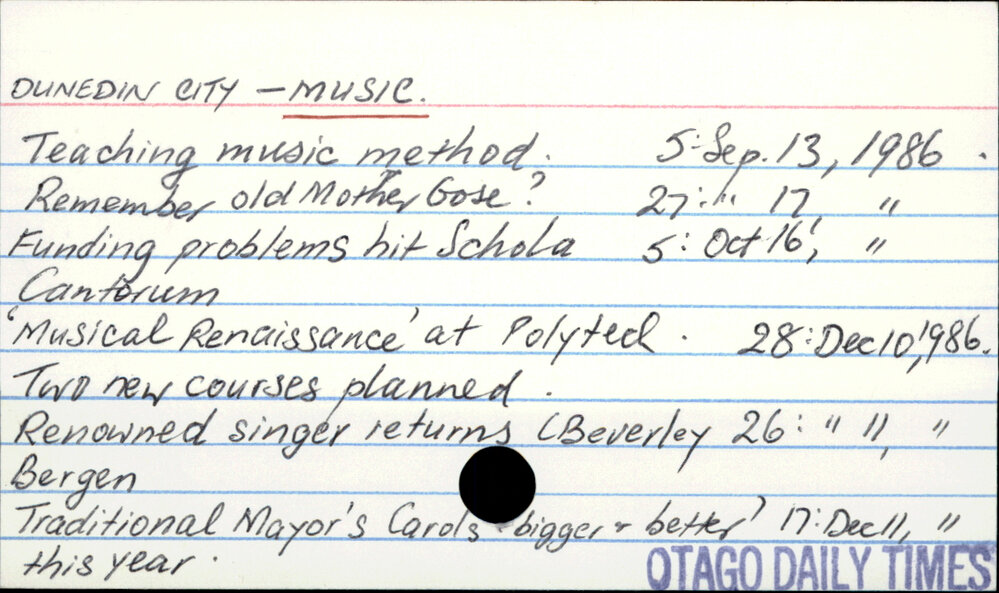 DUNEDIN CITY - MUSIC.
Teaching music method. 5: Sep. 13, 1986.
Remember old Mother Gose? 27: " 17, "
Funding problems hit Schola 5: Oct 16, "
Cantorum
'Musical Renaissance' at Polytech. 28: Dec 10, 1986.
Two new courses planned.
Renowned singer returns (Beverley 26: " 11, "
Bergen
Traditional Mayor's Carols 'bigger & better' 17: Dec 11, "
this year.
OTAGO DAILY TIMES